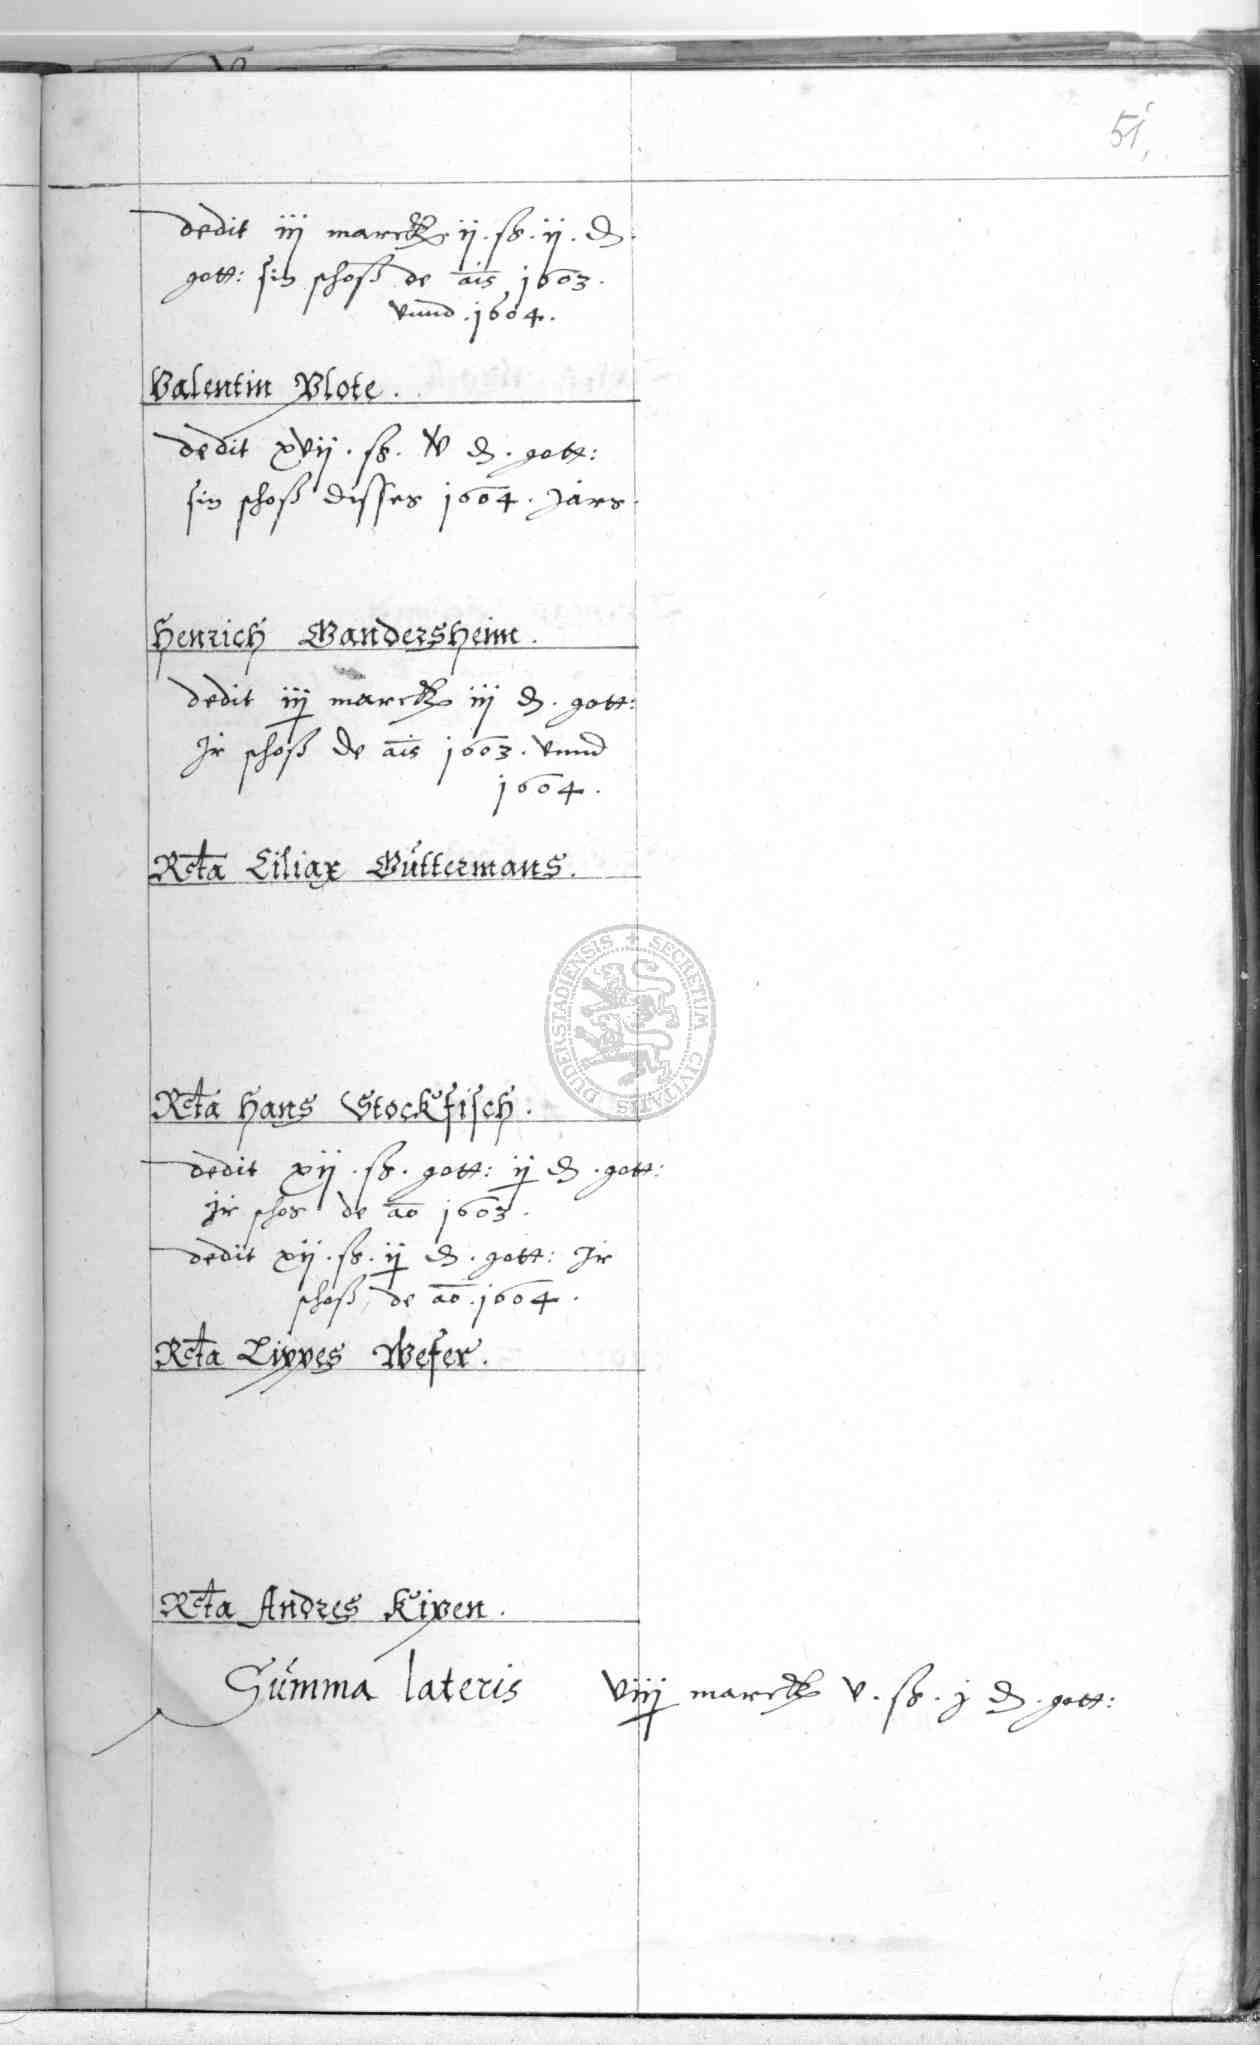 51,
dedit iij marck ij. ß. ij. ₰.
gott: sin schoß de ais 1603.
vnnd. 1604.
Valentin Plote.
dedit xvij. ß. v ₰. gott:
sin schoß disses 1604. Jars.
Henrich Gandersheim.
dedit iij marck iij ₰. gott:
Ir schoß de ais 1603. vnnd
1604.
Rcta Ciliax Güttermans.
Rcta Hans Stockfisch.
dedit xij. ß. gott: ij ₰. gott:
Jr schos de ao 1603.
dedit xij. ß. ij ₰. gott: Jr
schoß, de ao. 1604.
Rcta Lippes Weser.
Rcta Andres Kipen.
Summa lateris viiij marck v. ß. j ₰. gott:
SECRETUM CIVITATIS DUDERSTADIENSIS